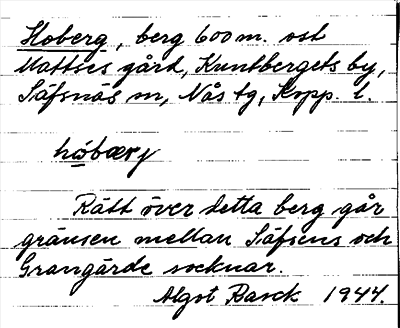 Hoberg, berg 600 m. ost
Mattses gård, Kuntbergets by,
Säfsnäs sn, Nås tg, Kopp. l.
hobærj
Rätt över detta berg går
gränsen mellan Säfsens och
Grangärde socknar.
Algot Rasck 1944.